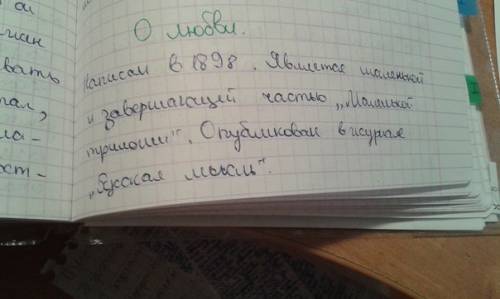 О любви.
Написан в 1898. Является маленькой
и завершающей частью „Маленькой
трилогии". Опубликован в журнале
„Русская мысль".
вать